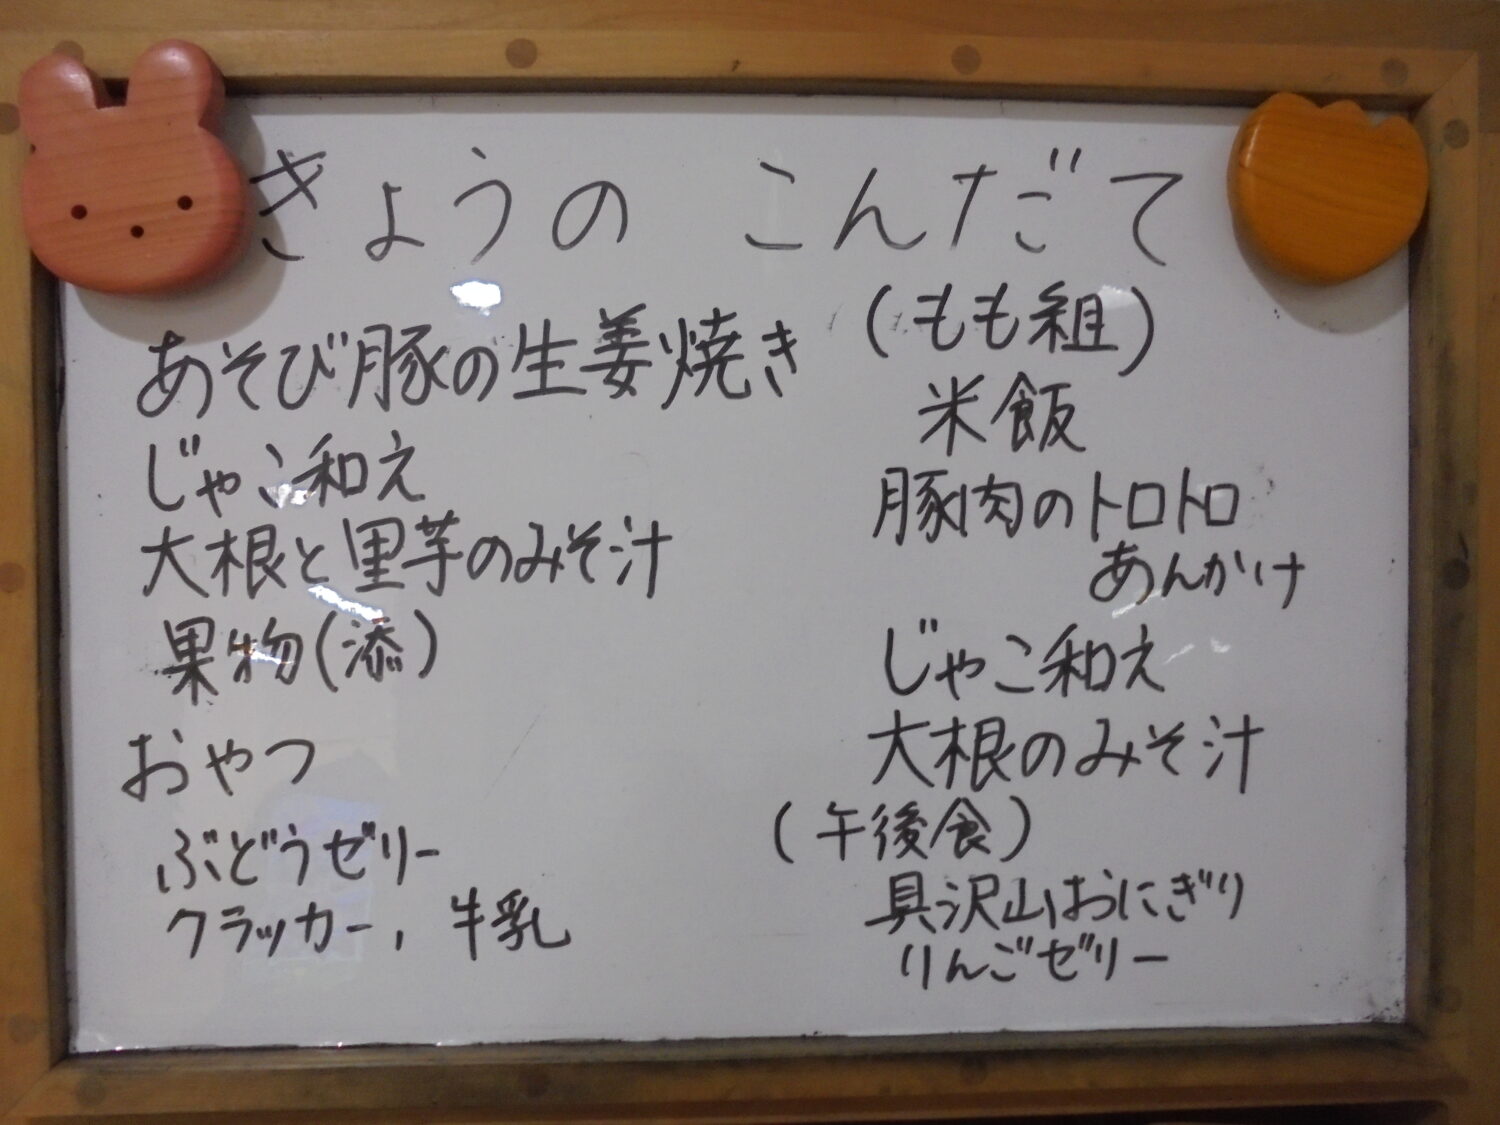 きょうの こんだて
あそび豚の生姜焼き
じゃこ和え
大根と里芋のみそ汁
果物(添)
おやつ
ぶどうゼリー
クラッカー, 牛乳
(もも組)
米飯
豚肉のトロトロ
あんかけ
じゃこ和え
大根のみそ汁
(午後食)
具沢山おにぎり
りんごゼリー